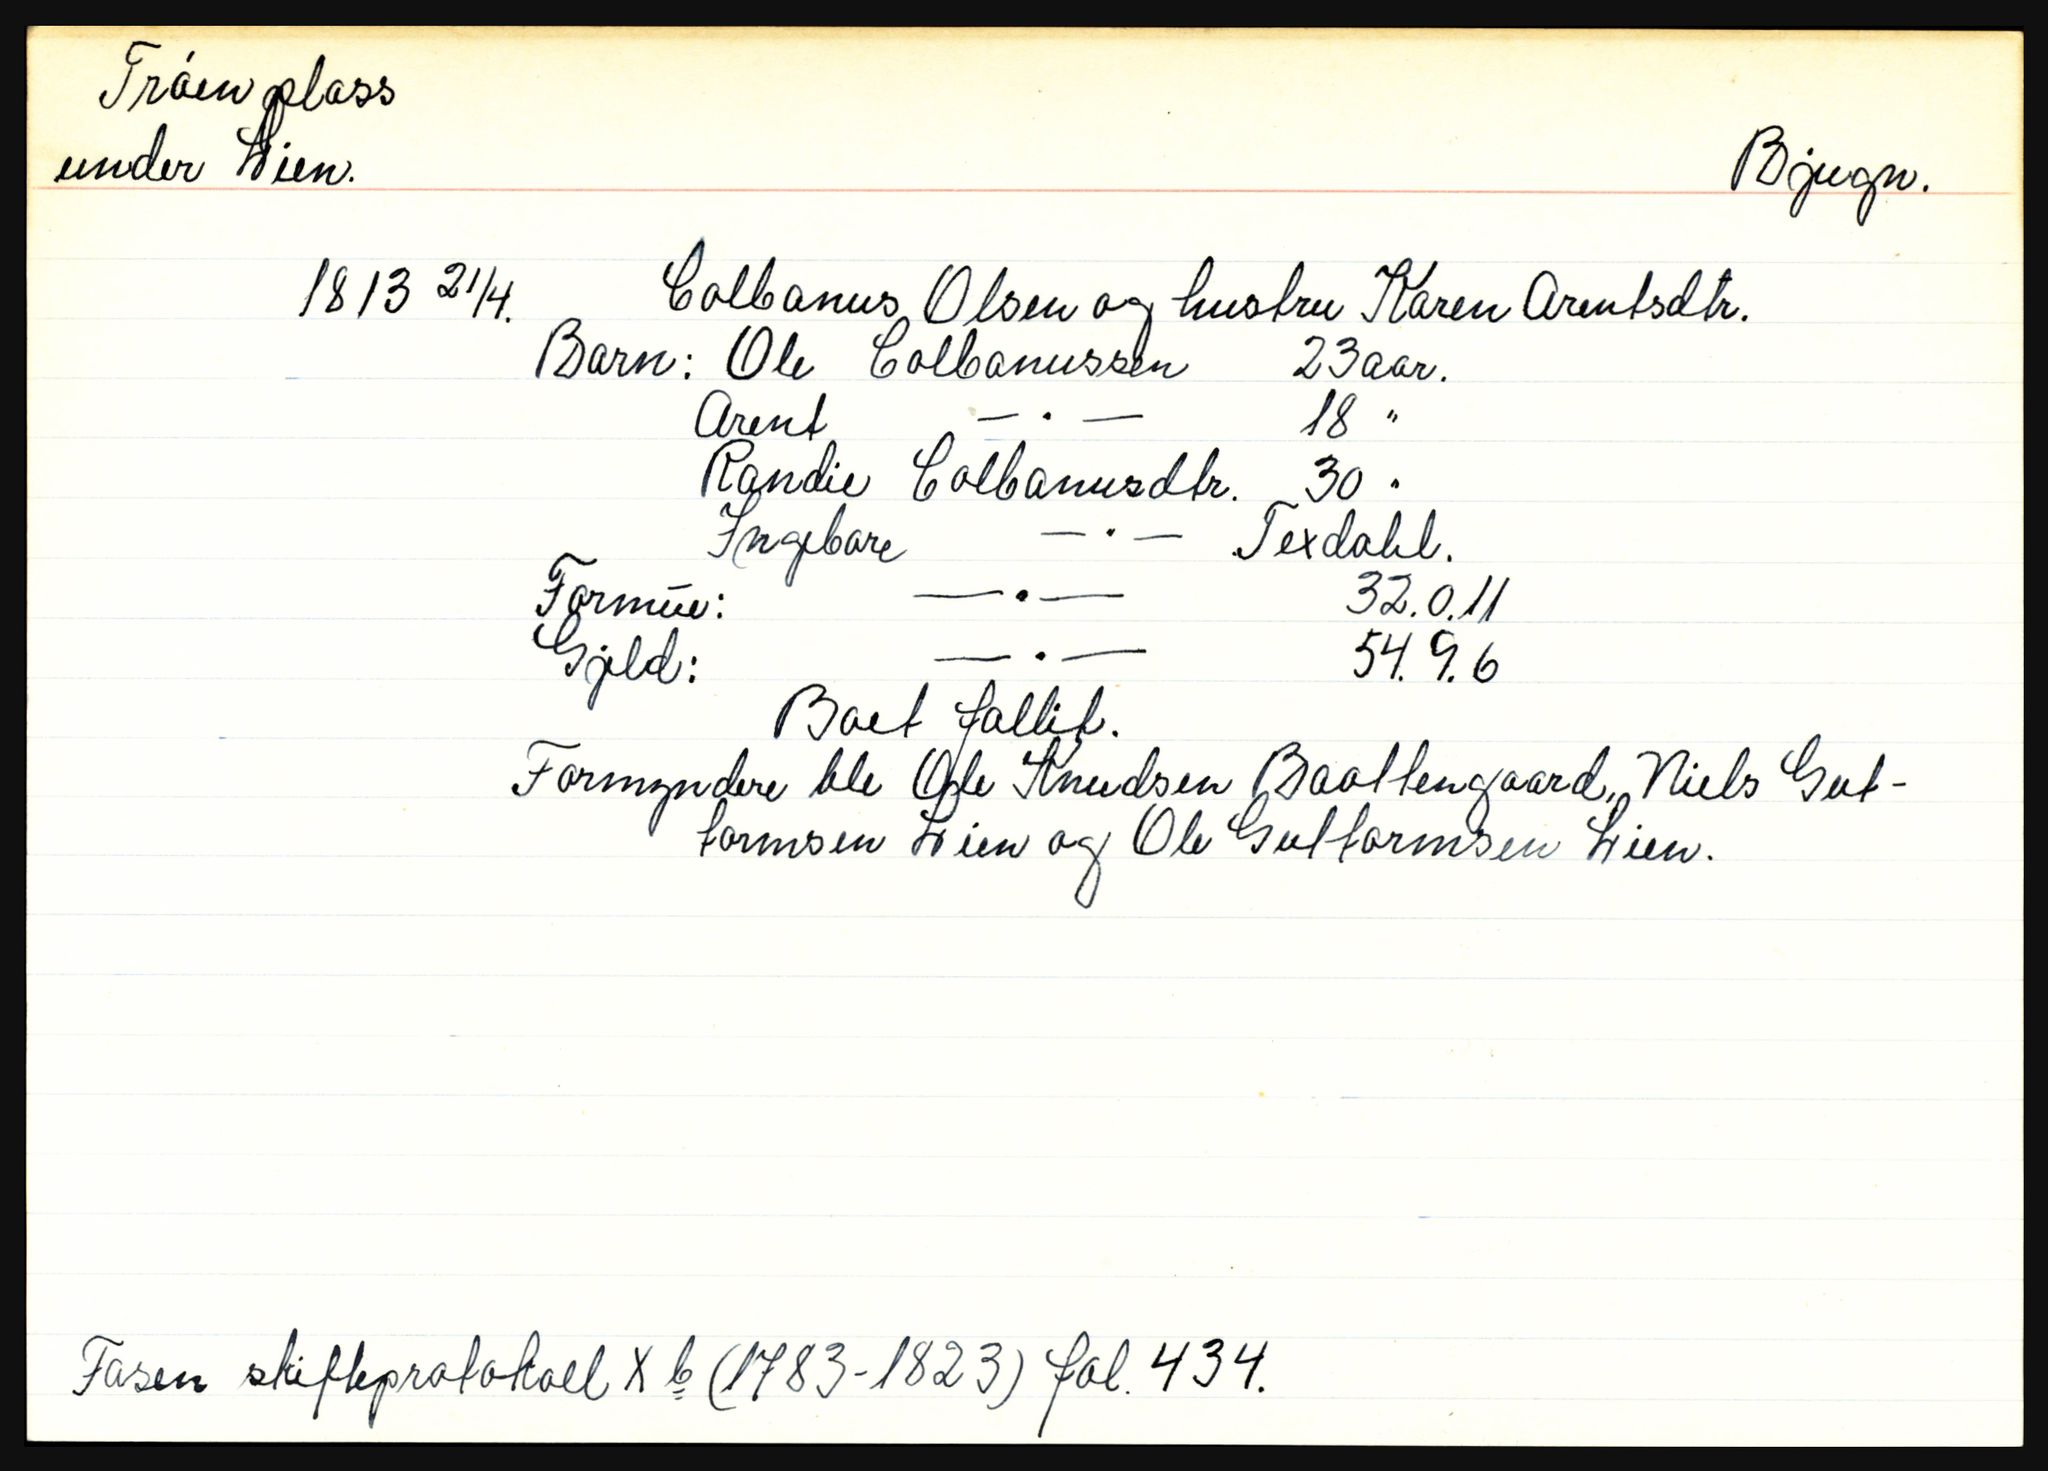 Tråen plass
under Lien.
Bjugn.
1813 21/4. Colbanus Olsen og hustru Karen Arentsdtr.
Barn: Ole Colbanussen 23 aar.
Arent — . — 18 "
Randie Colbanusdtr. 30 "
Ingebare — . — Texdahl.
Formue: — . — 32.0.11
Gjeld: — . — 54.9.6
Boet fallit.
Formyndere ble Ole Knudsen Baattengaard, Niels Gut-
tormsen Lien og Ole Guttormsen Lien.
Fosen skifteprotokoll X b (1783-1823) fol. 434.